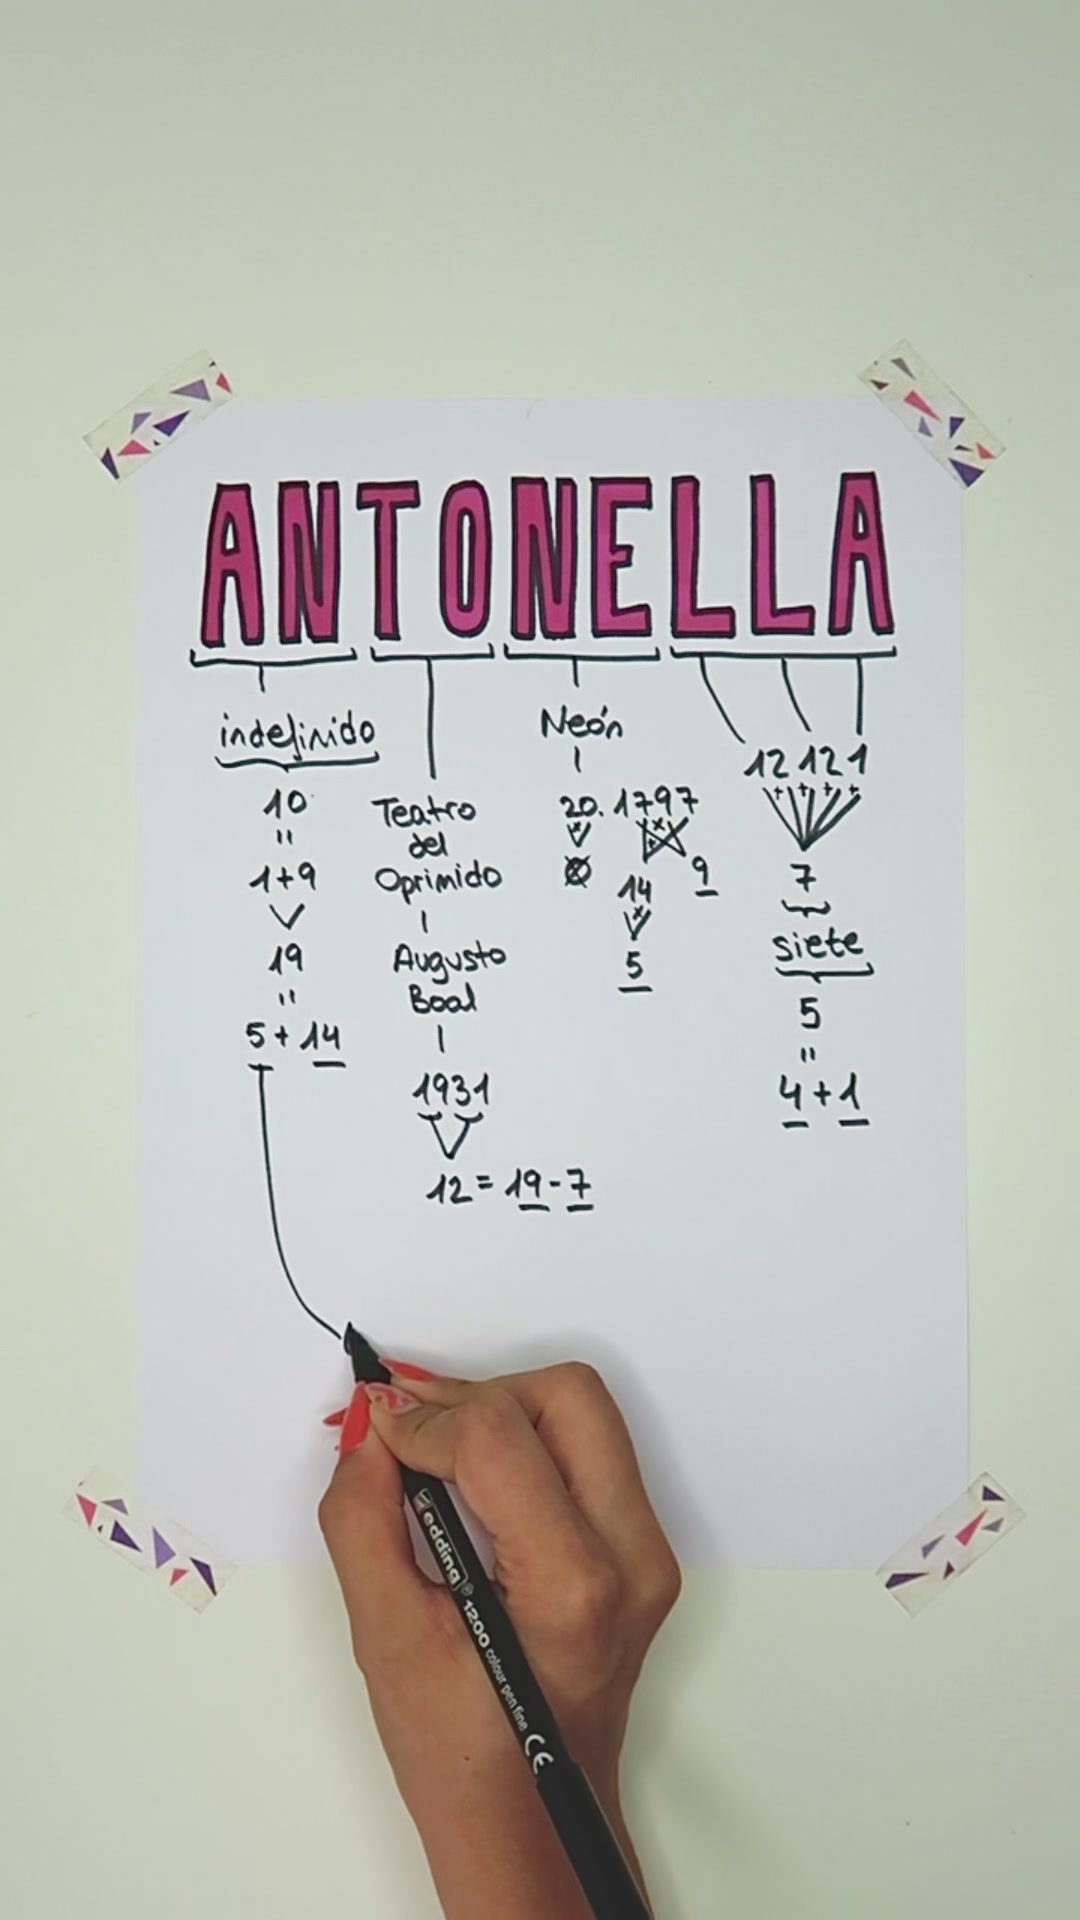 ANTONELLA
indefinido
10
"
1+9
19
"
5 + 14
Teatro
del
Oprimido
Augusto
Boal
1931
12 = 19 - 7
Neón
20.1797
14
9
5
12 12 1
+ + + +
7
siete
5
"
4 + 1
edding® 1200 colour pen fine CE